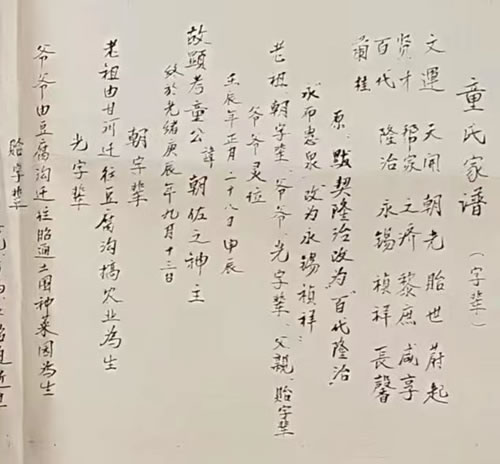 童氏家谱（字辈）
文運天開朝光貽世蔚起
贤才帮家之济黎庶咸享
百代隆治永锡祯祥長馨
蘭桂
原　　契隆治改为百代隆治
永而忠泉改为永锡祯祥：
老祖朝字辈、爷爷光字辈、父親、貽字辈
爷爷灵位
壬辰年正月二十八日甲辰
故顯考童公諱朝佐之神主
殁於光绪庚辰年九月十三日
朝字辈
老祖由甘河迁往豆腐沟搞火业為生
光字辈
爷爷由豆腐沟迁拦船通土国种菜园為生
貽字辈